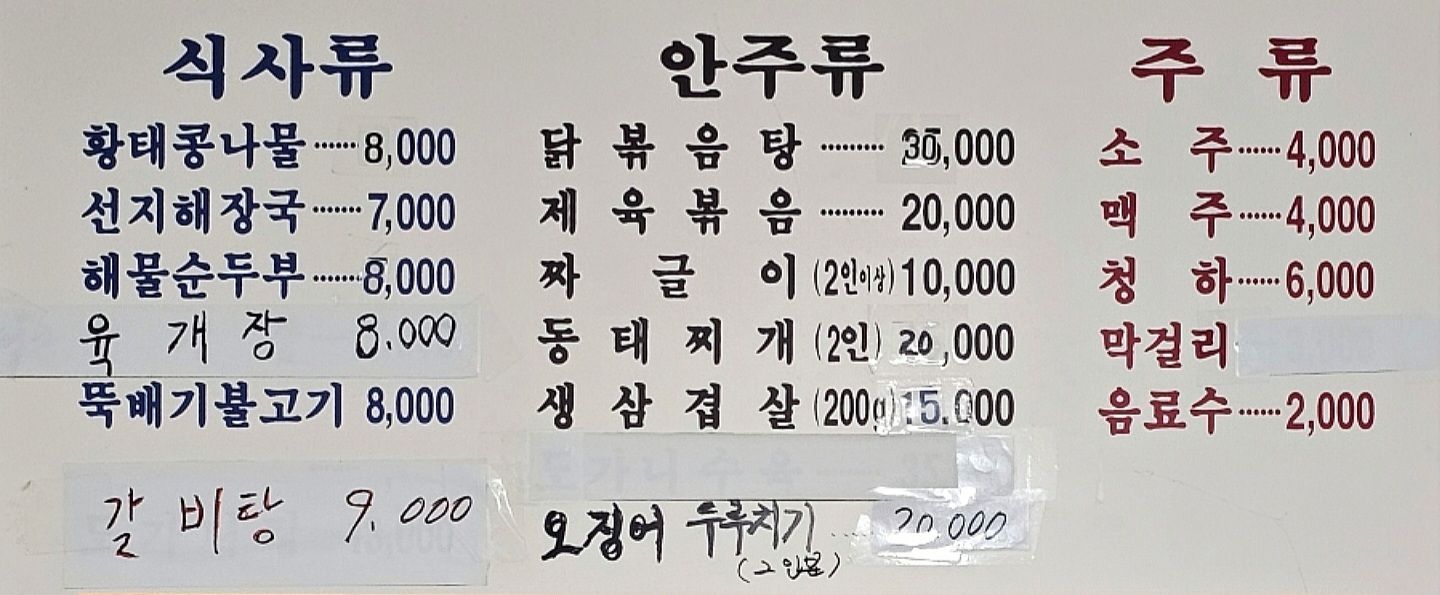 식사류
황태콩나물······8,000
선지해장국·······7,000
해물순두부·······8,000
육개장 8.000
뚝배기불고기 8,000
갈비탕 9.000
안주류
닭볶음탕·········30,000
제육볶음·········20,000
짜글이(2인이상)10,000
동태찌개(2인)20,000
생삼겹살(200g)15.000
도가니수육
오징어 두루치기.....20.000
(2인분)
주류
소주······4,000
맥주······4,000
청하······6,000
막걸리
음료수······2,000